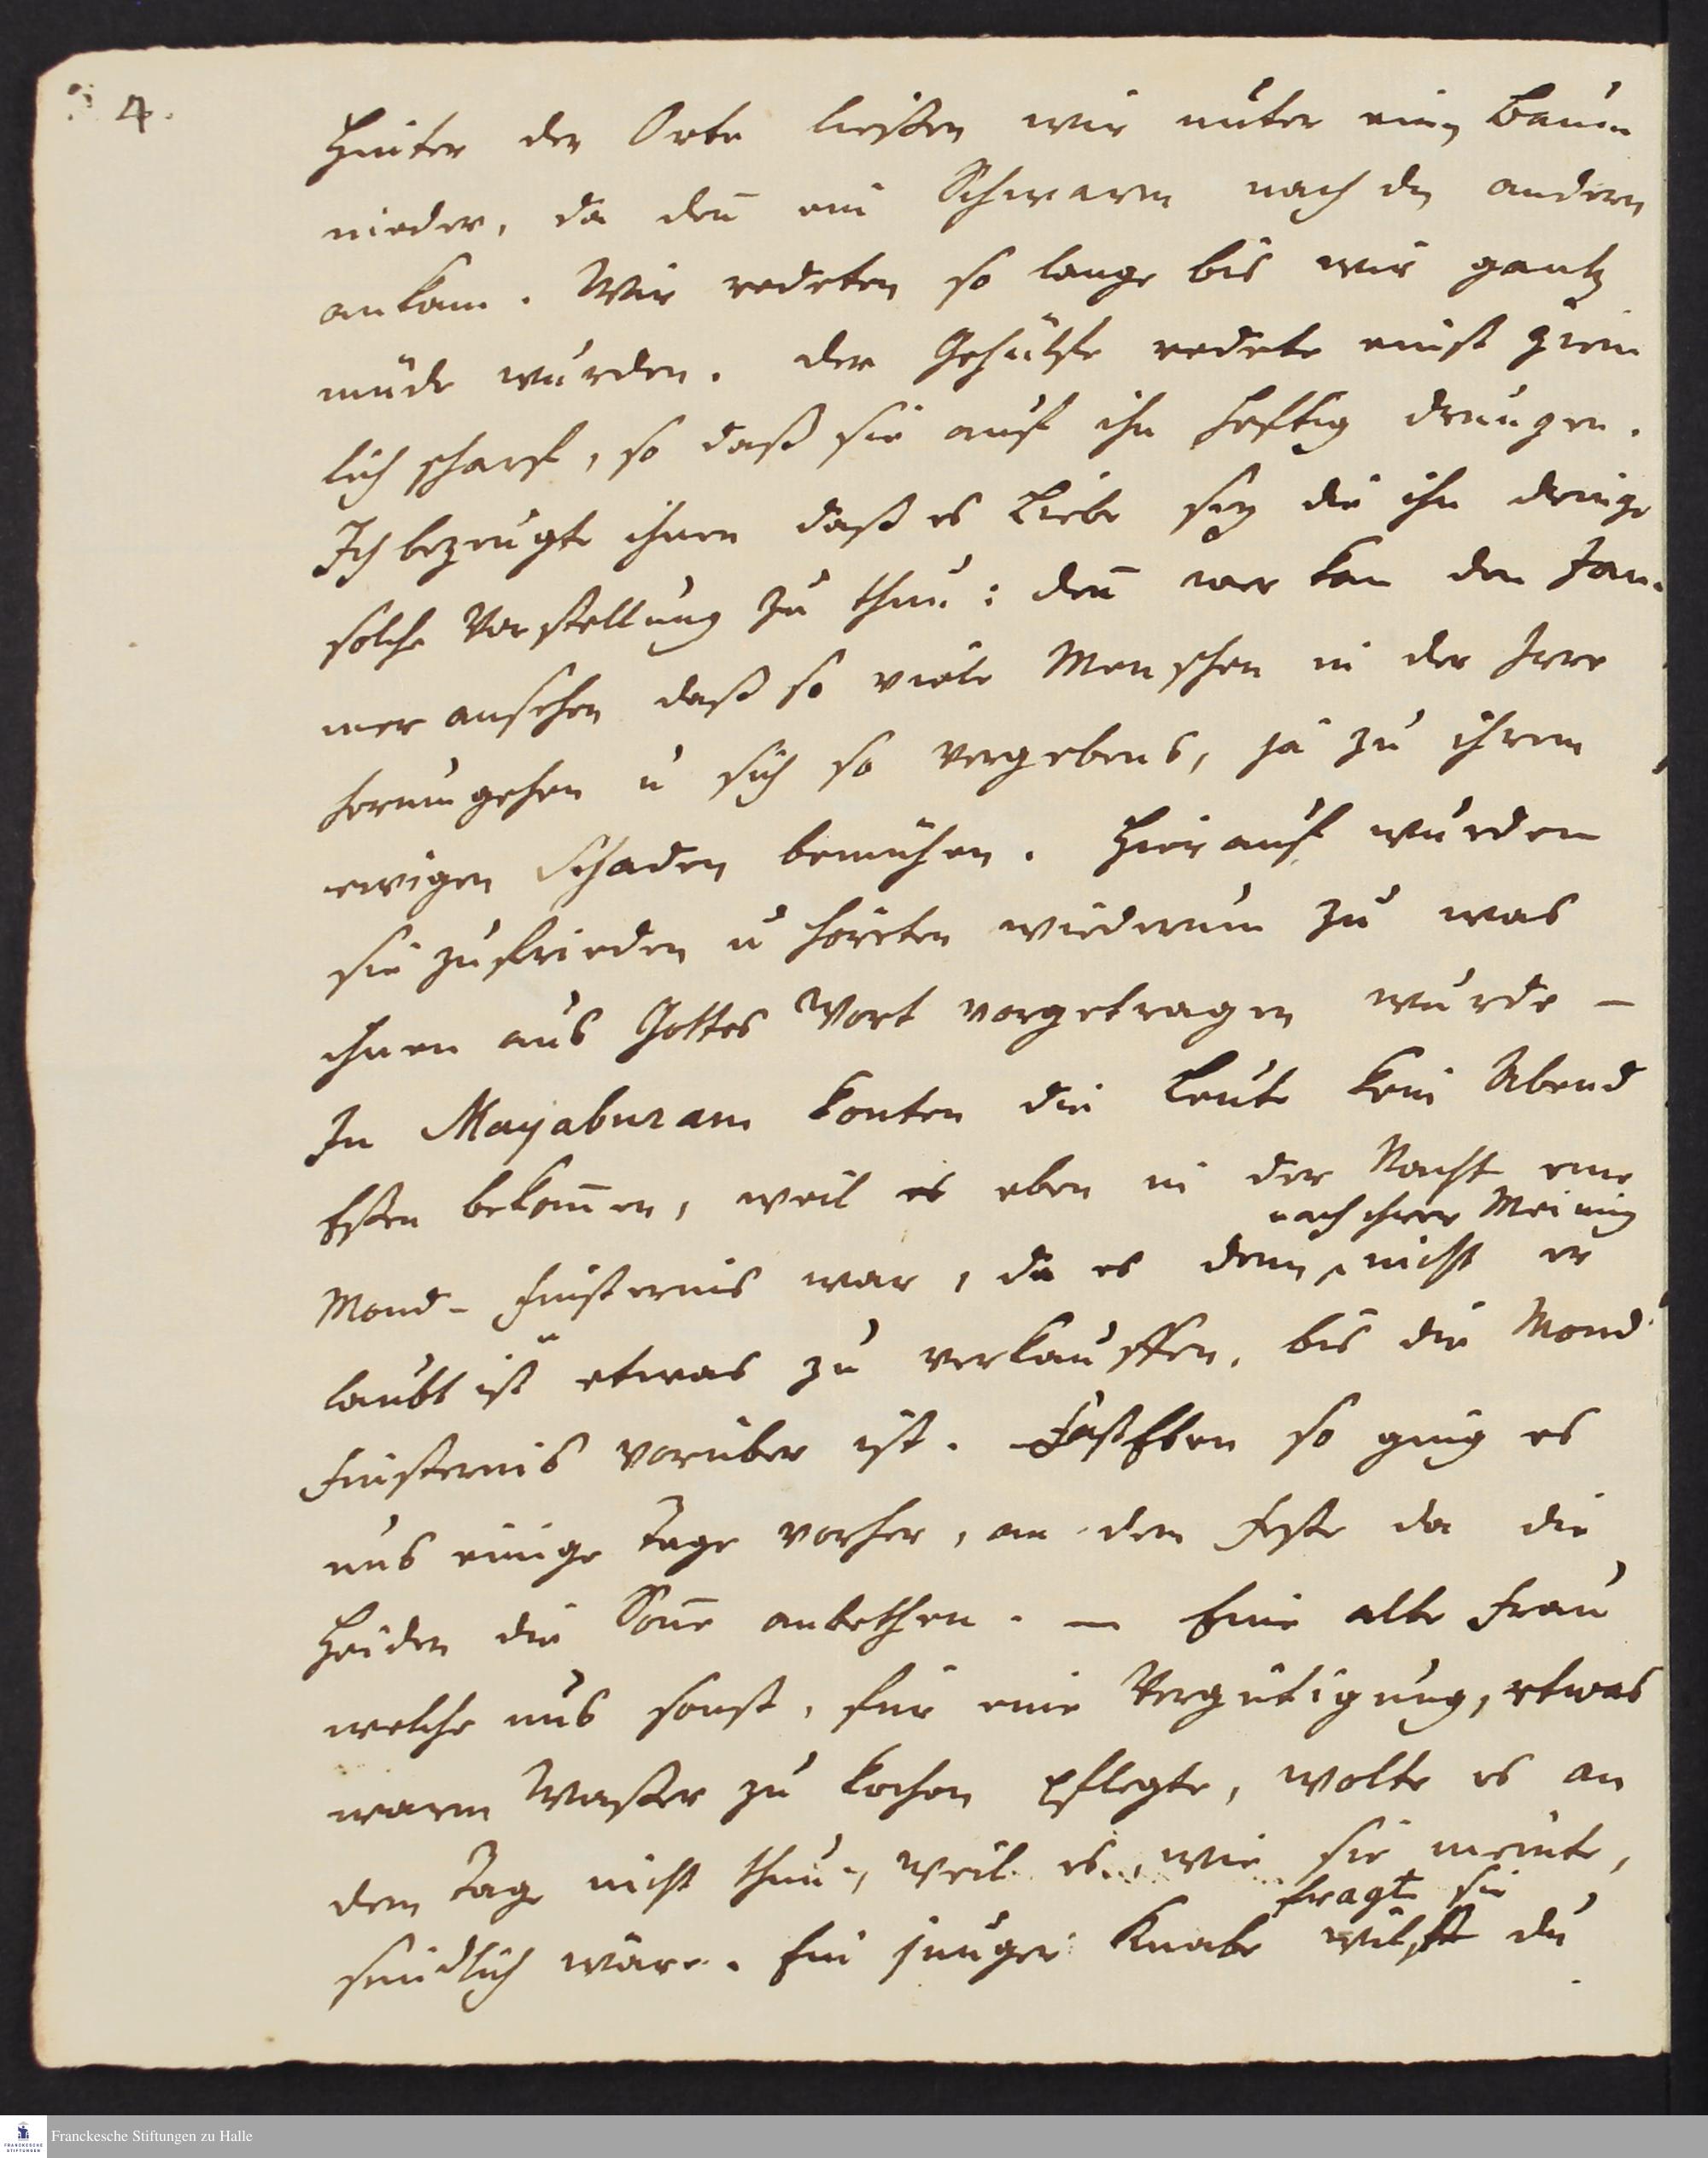 4.
Hinter der Orte liessen wir unter einen Baum
nieder, da deñ ein Schwarm nach den andern
ankam. Wir redeten so lange bis wir gantz
müde wurden. der Gehülfe redete einst ziem
lich scharf, so daß sie auf ihn heftig drungen.
Ich bezeugte ihnen daß es Liebe sey die ihn dringe
solche Vorstellung zu thun: deñ wer kan den Jam-
mer ansehen daß so viele Menschen in der Irre
herumgehen u sich so vergebens, ja zu ihrem
ewigen Schaden bemühen. Hierauf wurden
sie zufrieden u hörten wiederum zu was
ihnen aus Gottes Wort vorgetragen wurde –
In Mayaburam konten die Leute kein Abend
Essen bekom̄en, weil es eben in der Nacht eine
nach ihrer Meinung
Mond-Finsternis war, da es denn nicht er
laubt ist etwas zu verkauffen, bis die Mond
Finsternis vorüber ist. Fast Eben so ging es
uns einige Tage vorher, an dem Feste da die
Heiden die Soñe anbethen. — Eine alte Frau
welche uns sonst, für eine Vergütigung, etwas
warm Wasser zu kochen pflegte, wolte es an
dem Tage nicht thun, weil es, wie sie meinte,
fragte sie
sündlich wäre. Ein junger Knabe wilst du
Franckesche Stiftungen zu Halle
FRANCKESCHE
STIFTUNGEN